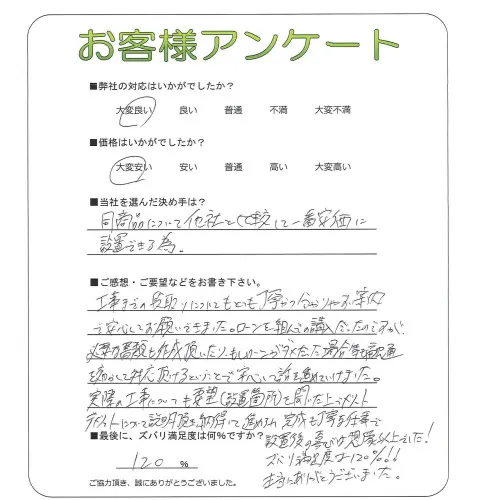 お客様アンケート
■弊社の対応はいかがでしたか？
大変良い 良い 普通 不満 大変不満
■価格はいかがでしたか？
大変安い 安い 普通 高い 大変高い
■当社を選んだ決め手は？
同商品について他社と比較して一番安価に
設置できる為。
■ご感想・ご要望などをお書き下さい。
工事までの段取りについてもとても丁寧かつ分かりやすい案内
で安心してお願いできました。ローンを組んでの購入だったのですが、
必要書類も作成頂いたり、もしローンがダメだった場合等も融通
を効かして対応頂けるということで安心して話を進めていけました。
実際の工事についても要望(設置箇所)を聞いた上でメリット
デメリットについて説明頂き納得して進められ、完成も丁寧な仕事で
設置後の喜びは想像以上でした！
ズバリ満足度は120%!!!
本当にありがとうございました。
■最後に、ズバリ満足度は何％ですか？
120 %
ご協力頂き、誠にありがとうございました。